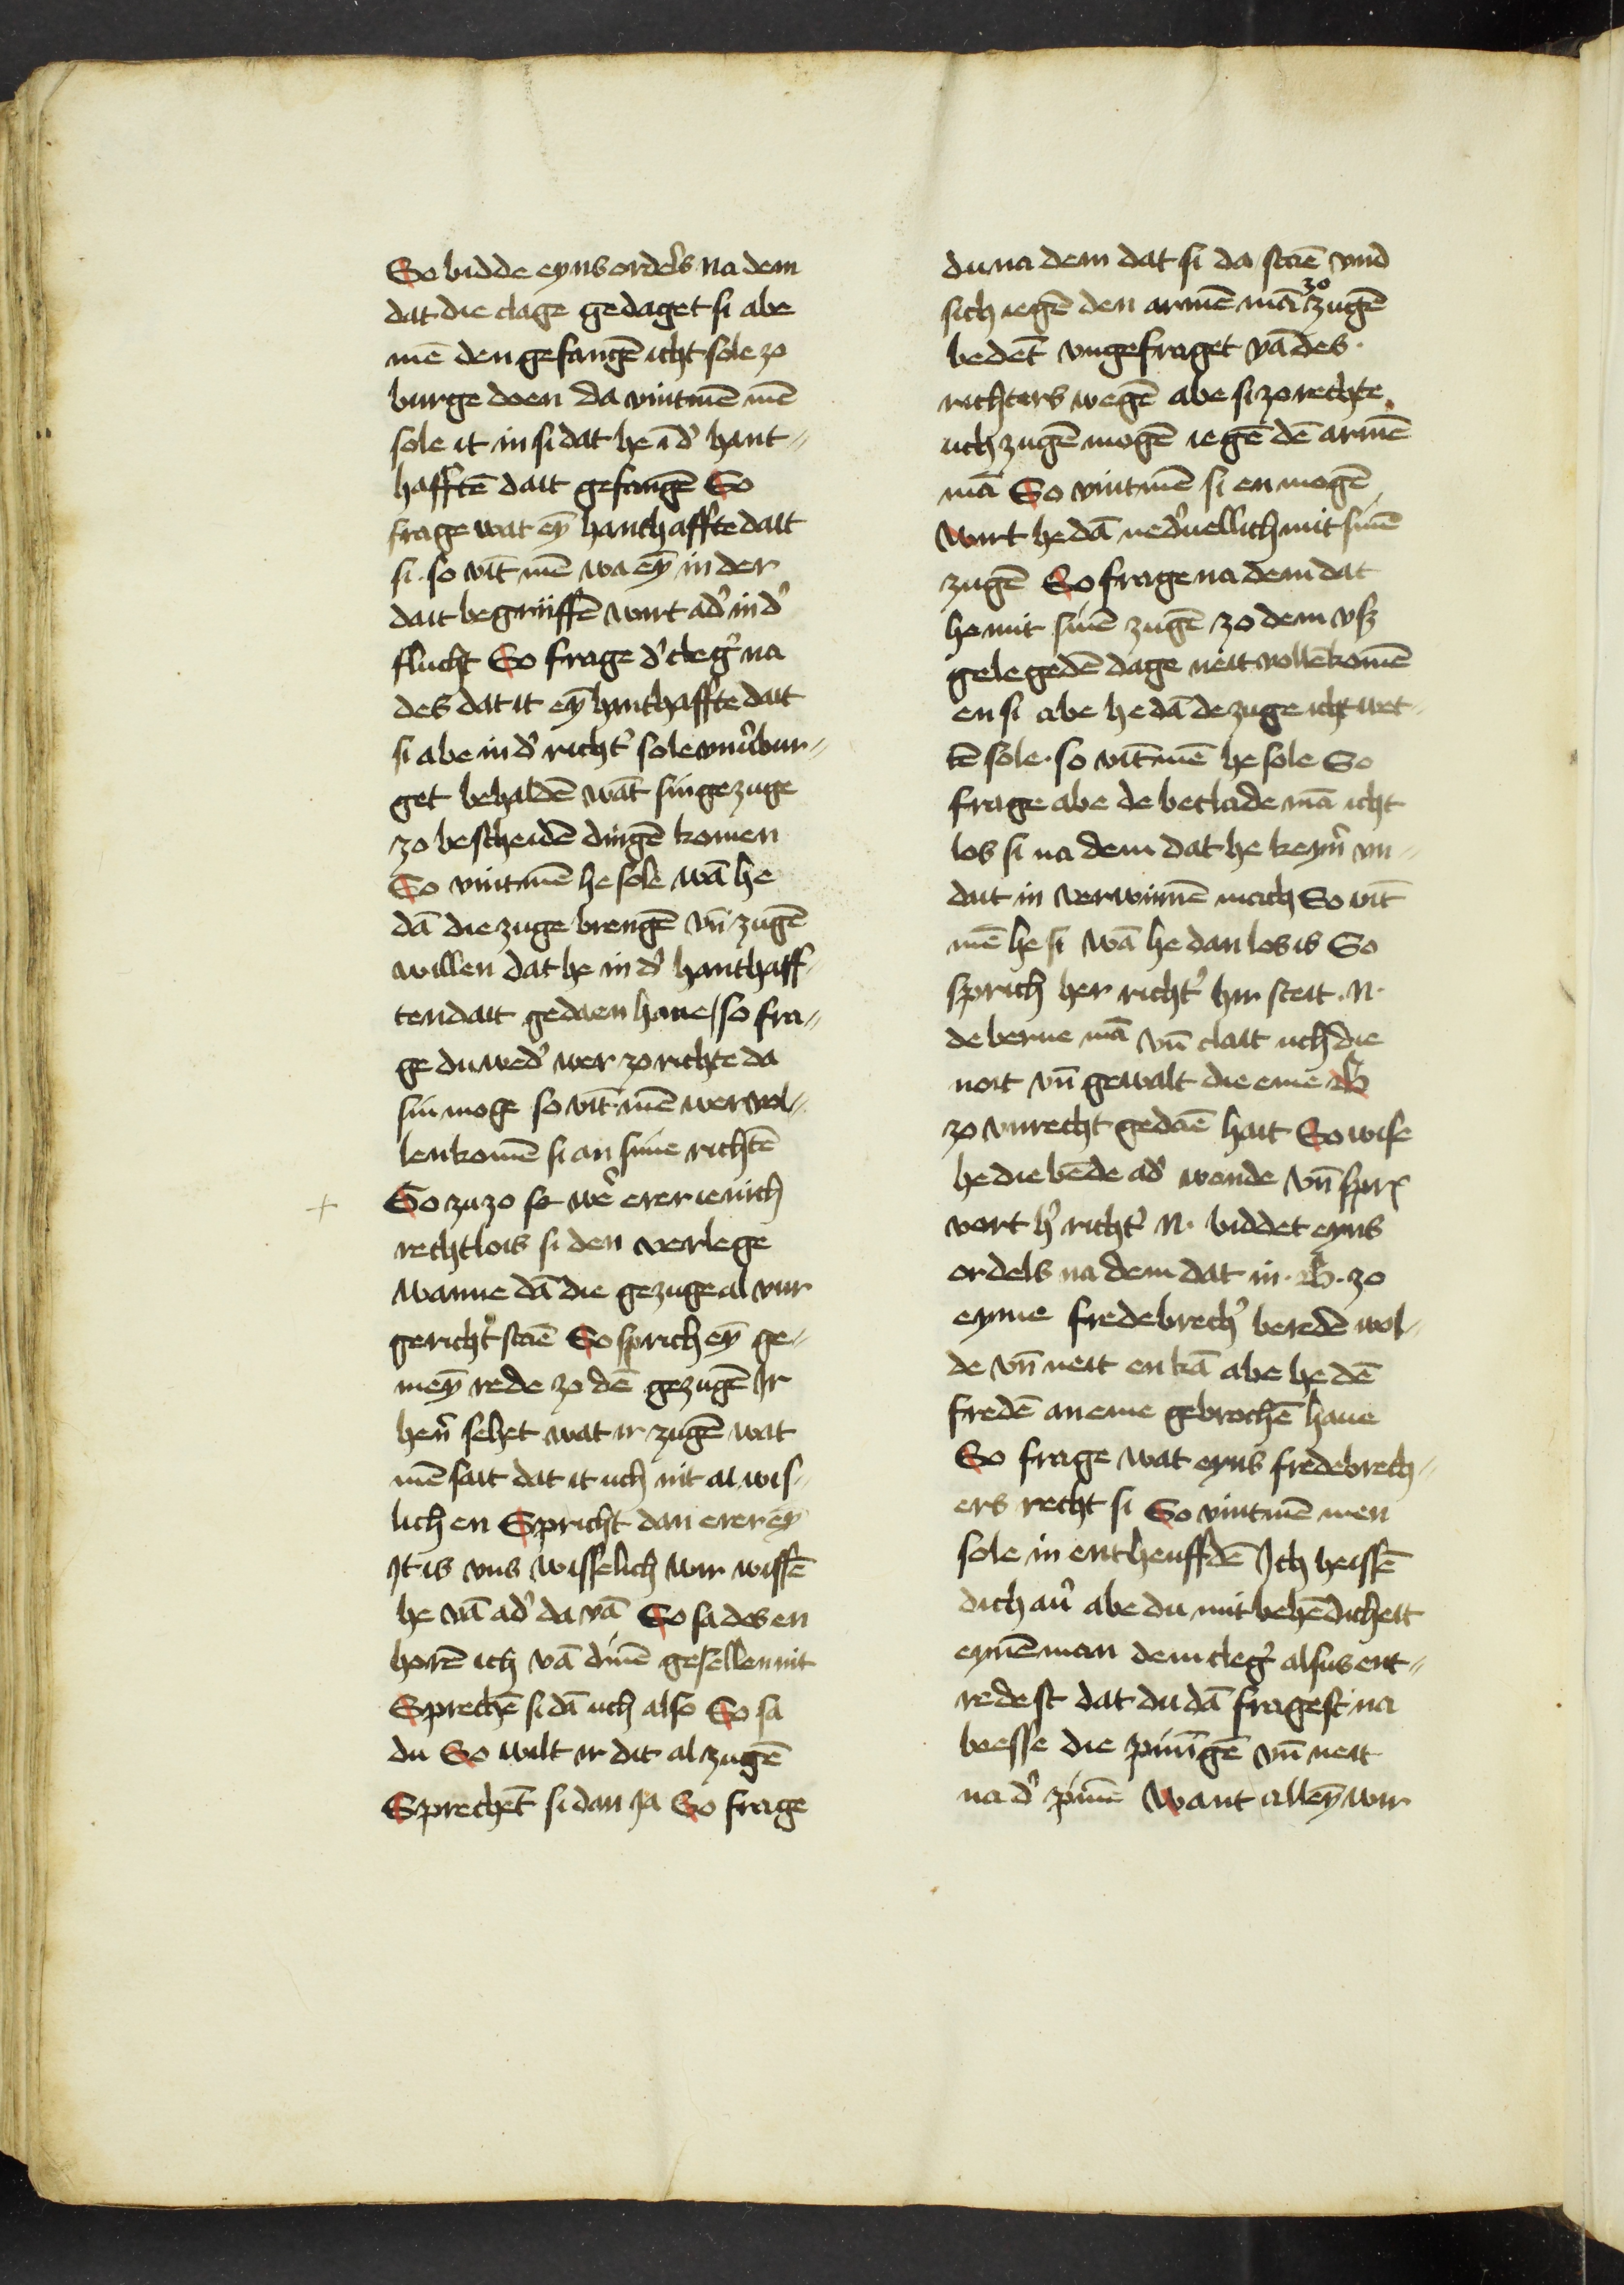 So bidde eyns ordels na dem
dat die clage gedaget si abe
mē den gefangē icht sole zo
burge doen da vintmē mē
sole it in si dat he ī d' hant„
hafftē dait gefangē So
frage wat eȳ hanthaffte dait
si · so vīt mē wa eȳ in der
dait begriiffē wirt ad' in d'
flucht So frage d' cleg' na
des dat it eȳ hanthaffte dait
si abe in d' richt' sole vnu'bur„
get behaldē wāt sin gezuge
zo bescheidē dingē komen
So vintmē he sole wā he
dā die zuge brengē vn̄ zugē
willen dat he in d' hanthaff
ten dait gedaen haue / so fra„
ge du wed' wer zo richte da
sin moge so vīt mē wer vol„
lenkomē si an sime richtē
So za zo so we' erer ienich
rechtlois si den verlege
wanne dā die gezuge al vur
gericht' staē So sprich eȳ ge„
meȳ rede zo dē gezugē Ir
hen' sehet wat ir zugē wat
mē sait dat it uch nit al wis„
lich en Spricht dan erer eȳ
It is vns wisselich wir wissē
he vā ad' da vā So sa des en
horē ich vā dinē gesellen nit
Sprechē si dā uch also So sa
du So wilt ir dit al zugē
Sprechēt si dan Ja So frage
du na dem dat si da staē vnd
sich iegē den armē mā zo zugē
bedēt vngefraget vā des ·
richters wegē abe si zo rechte
uch zugē mogē iegē dē armē
mā So vintmē si en mogē
wirt he dā ned'uellich mit sinē
zugē So frage na dem dat
he mit sinē zugē zo dem vß
gelegedē dage neit vollēkomē
en si abe he dā de zuge icht wet„
tē sole · so vītmē he sole So
frage abe de beclade mā icht
los si na dem dat he keyn' vn„
dat in verwinnē mach So vīt
mē he si wā he dan los is So
sprich her richt' hir steit · N ·
de berue mā vn̄ clait uch die
noit vn̄ gewalt die eme B
zo vnrecht gedaē hait So wise
he die bēde ad' wonde vn̄ sprx
vort h' richt' N · biddet eyns
ordels na dem dat in · B · zo
eyme fredebrech' beredē wol„
de vn̄ neit en kā abe he dē
fredē an eme gebrochē haue
So frage wat eyns fredebrech„
ers recht si So vintmē men
sole in entheuffdē Ich heissē
dich au' abe du mit behēdicheit
eynē man dem cleg' alsus ent„
redest dat du dā fragest na
besse die pinīgē vn̄ neit
na d' pinē want alleȳ wir